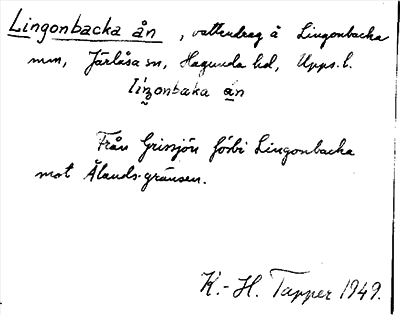 Lingonbacka ån, vattendrag å Lingonbacka
mm, Järlåsa sn, Hagunda hd, Upps. l.
líŋonbaka ån
Från Grissjön förbi Lingonbacka
mot Ålands-gränsen.
K.-H. Tapper 1949.